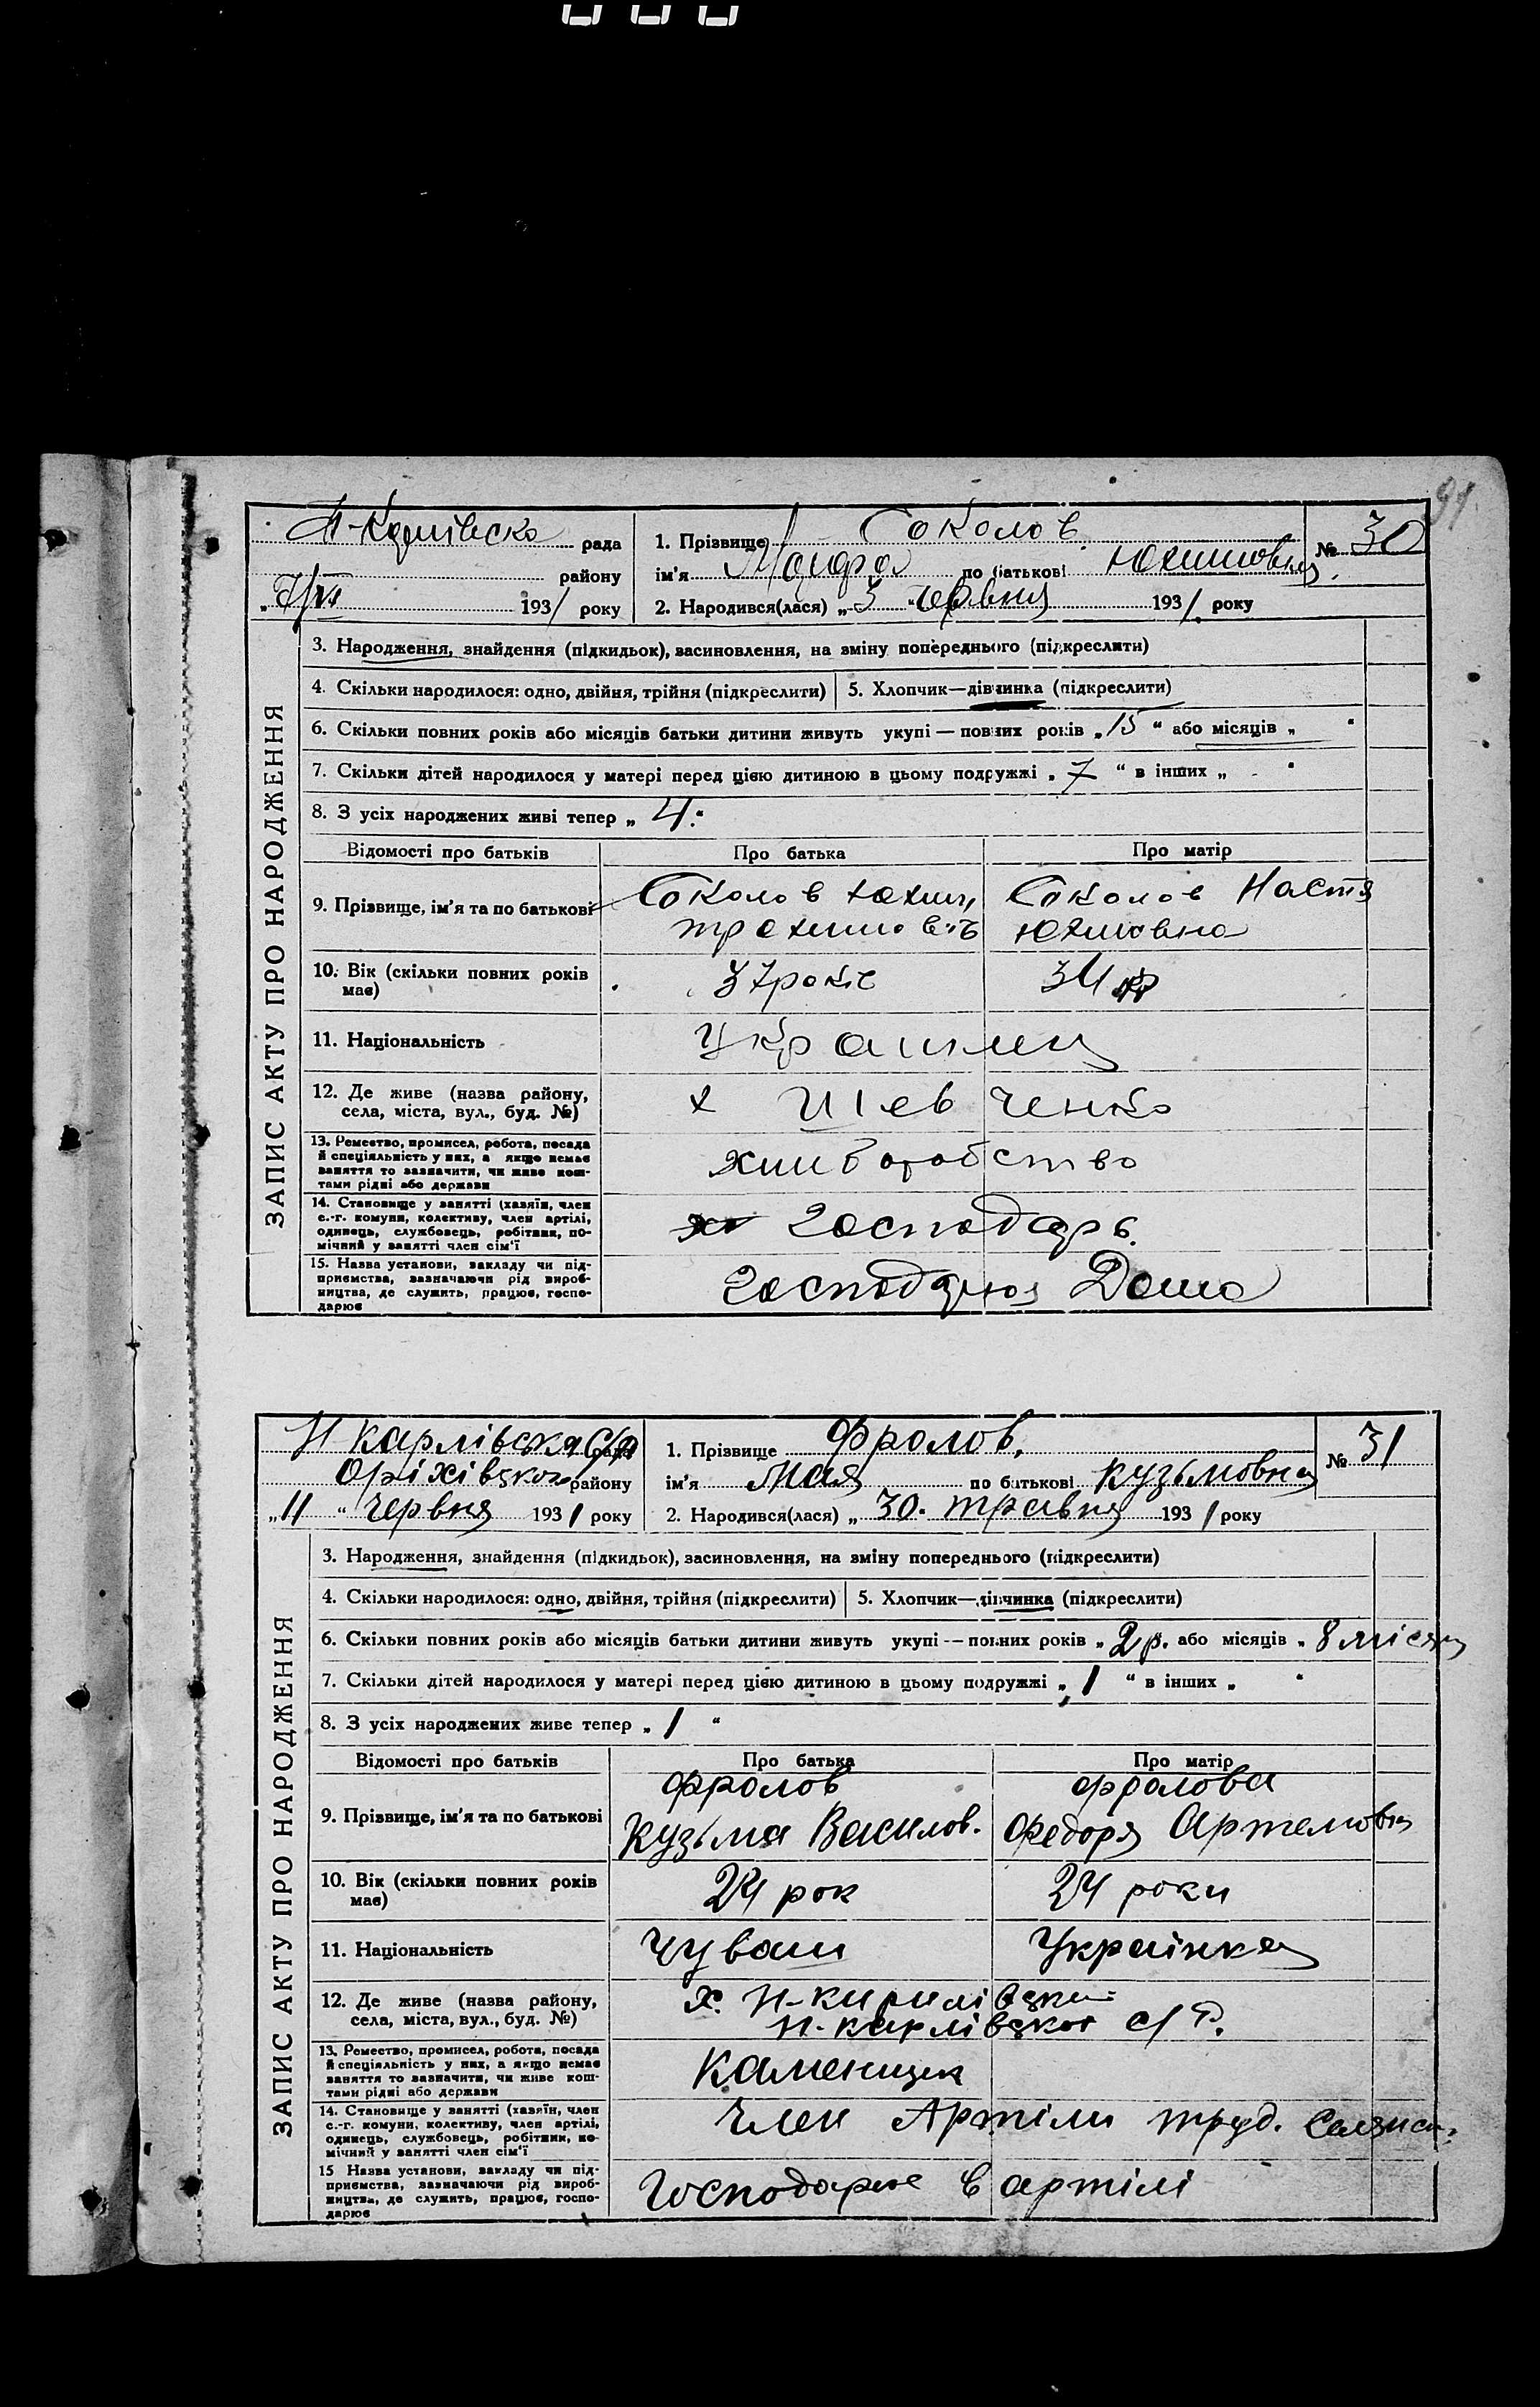 91
Н-Карлівска рада
району
7/VI 1931 року
1. Прізвище Соколов
ім'я по батькові Юхимовна
2. Народився(лася) „ 3 " червня 1931 року
№ 30
ЗАПИС АКТУ ПРО НАРОДЖЕННЯ
3. Народження, знайдення (підкидьок), васиновлення, на зміну попереднього (підкреслити)
4. Скільки народилося: одно, двійня, трійня (підкреслити) 5. Хлопчик—дівчинка (підкреслити)
6. Скільки повних років або місяців батьки дитини живуть укупі — повних років „ 15 " або місяців „ "
7. Скільки дітей народилося у матері перед цією дитиною в цьому подружжі „ 7 " в інших „ - "
8. З усіх народжених живі тепер „ 4 "
Відомості про батьків Про батька Про матір
9. Прізвище, ім'я та по батькові Соколов Юхим Соколов Настя
трохимовичъ Юхимовна
10. Вік (скільки повних років має) 37 років 34
11. Національність Украинец
12. Де живе (назва району, села, міста, вул., буд. №) х Шевченко
13. Ремество, промисел, робота, посада
й спеціяльність у них, а якщо немає
заняття то зазначити, чи живе кош-
тами рідні або держави
хлиборобство
14. Становище у занятті (хазяїн, член
с.-г. комуни, колективу, член артілі,
одинець, службовець, робітник, по-
мічний у занятті член сім'ї
господарь
15. Назва установи, закладу чи під-
приємства, зазначаючи рід вироб-
ництва, де служить, працює, госпо-
дарює
Дома
Н Карлівська С/Р рада
Оріхівского району
„ 11 " Червня 1931 року
1. Прізвище Фролов.
ім'я Мая по батькові Кузьмовна
2. Народився(лася) „ 30. травня 1931 року
№ 31
ЗАПИС АКТУ ПРО НАРОДЖЕННЯ
3. Народження, знайдення (підкидьок), засиновлення, на зміну попереднього (підкреслити)
4. Скільки народилося: одно, двійня, трійня (підкреслити) 5. Хлопчик—дівчинка (підкреслити)
6. Скільки повних років або місяців батьки дитини живуть укупі — повних років „ 2 р. або місяців „ 8 місяц
7. Скільки дітей народилося у матері перед цією дитиною в цьому подружжі „ 1 " в інших „ "
8. З усіх народжених живе тепер „ 1 "
Відомості про батьків Про батька Про матір
Фролов Фролова
9. Прізвище, ім'я та по батькові Кузьма Василов. Федоря Артемовн
10. Вік (скільки повних років має) 24 рок 24 роки
11. Національність Чуваш Українка
12. Де живе (назва району, села, міста, вул., буд. №) х. Н-Кирилівский
Н-Карлівскої С/Р.
13. Ремество, промисел, робота, посада
й спеціяльність у них, а якщо немає
заняття то зазначити, чи живе кош-
тами рідні або держави
Каменщик
14. Становище у занятті (хазяїн, член
с.-г. комуни, колективу, член артілі,
одинець, службовець, робітник, по-
мічний у занятті член сім'ї
Член Артіли труд. Селянск.
15 Назва установи, закладу чи під-
приємства, зазначаючи рід вироб-
ництва, де служить, працює, госпо-
дарює
Господарює в артілі